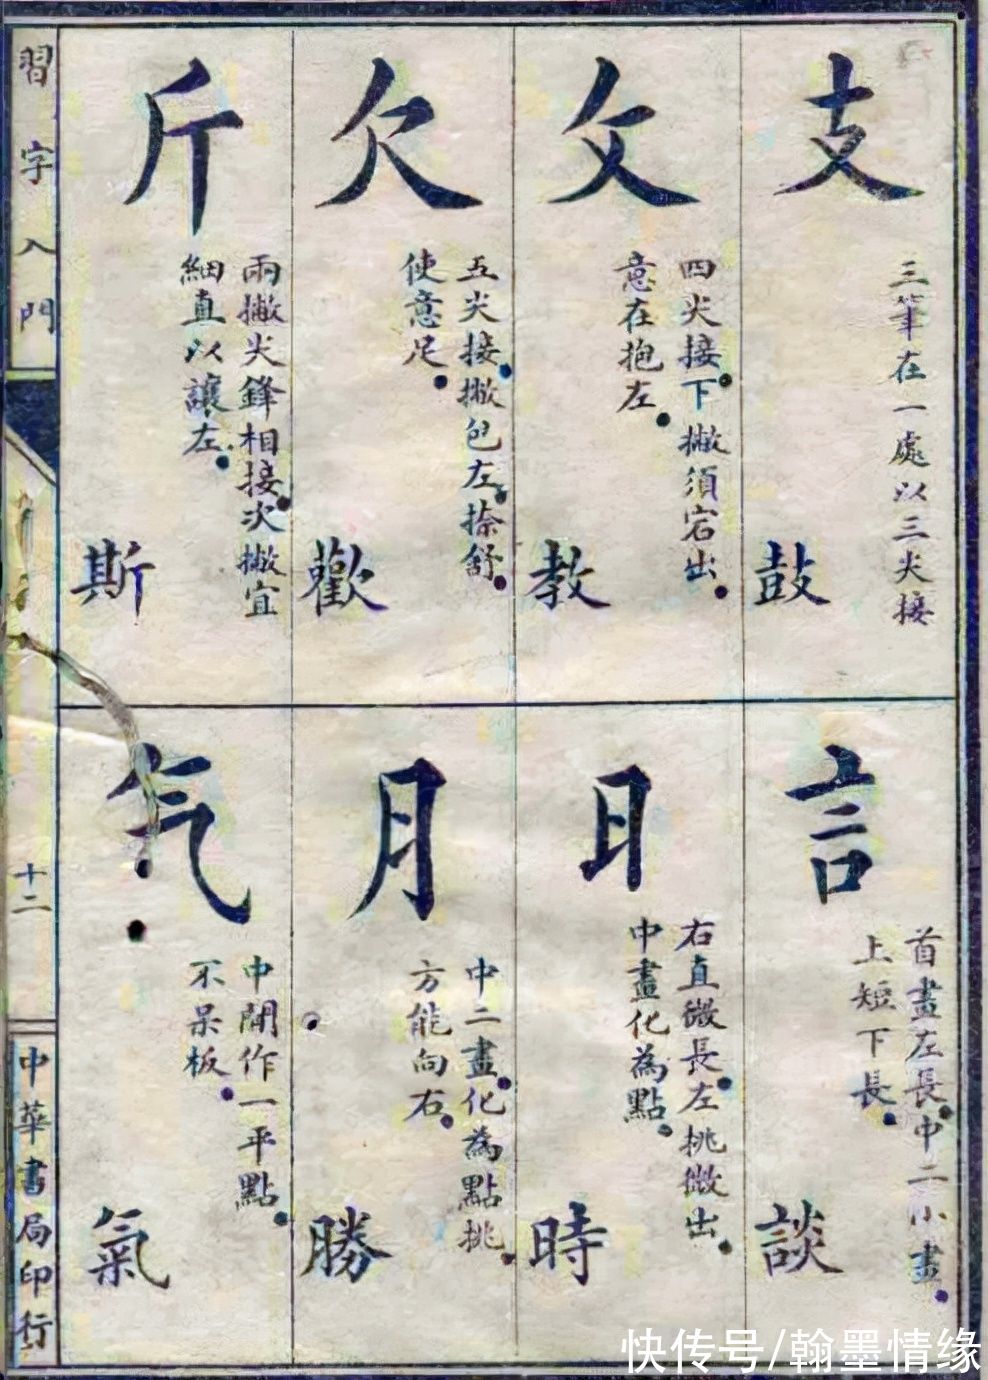 支
三筆在一處以三尖接
鼓
攵
四尖接下撇須宕出
意在抱左
教
欠
五尖接撇包左捺舒
使意足
歡
斤
兩撇尖鋒相接次撇宜
細直以讓左
斯
言
首畫左長中二小畫
上短下長
談
日
右直微長左挑微出
中畫化為點
時
月
中二畫化為點挑
方能向右
勝
气
中間作一平點
不呆板
氣
習字入門
十二
中華書局印行
快传号/翰墨情缘